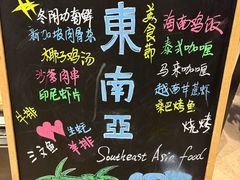 冬阴功海鲜
新加坡肉骨茶
椰子鸡汤
沙爹肉串
印尼虾片
牛排
三文鱼
生蚝
羊排
東南亞
美食節
海南鸡饭
泰式咖喱
马来咖喱
越南芽菜虾
桑巴烤鱼
烧烤
Southeast Asia food